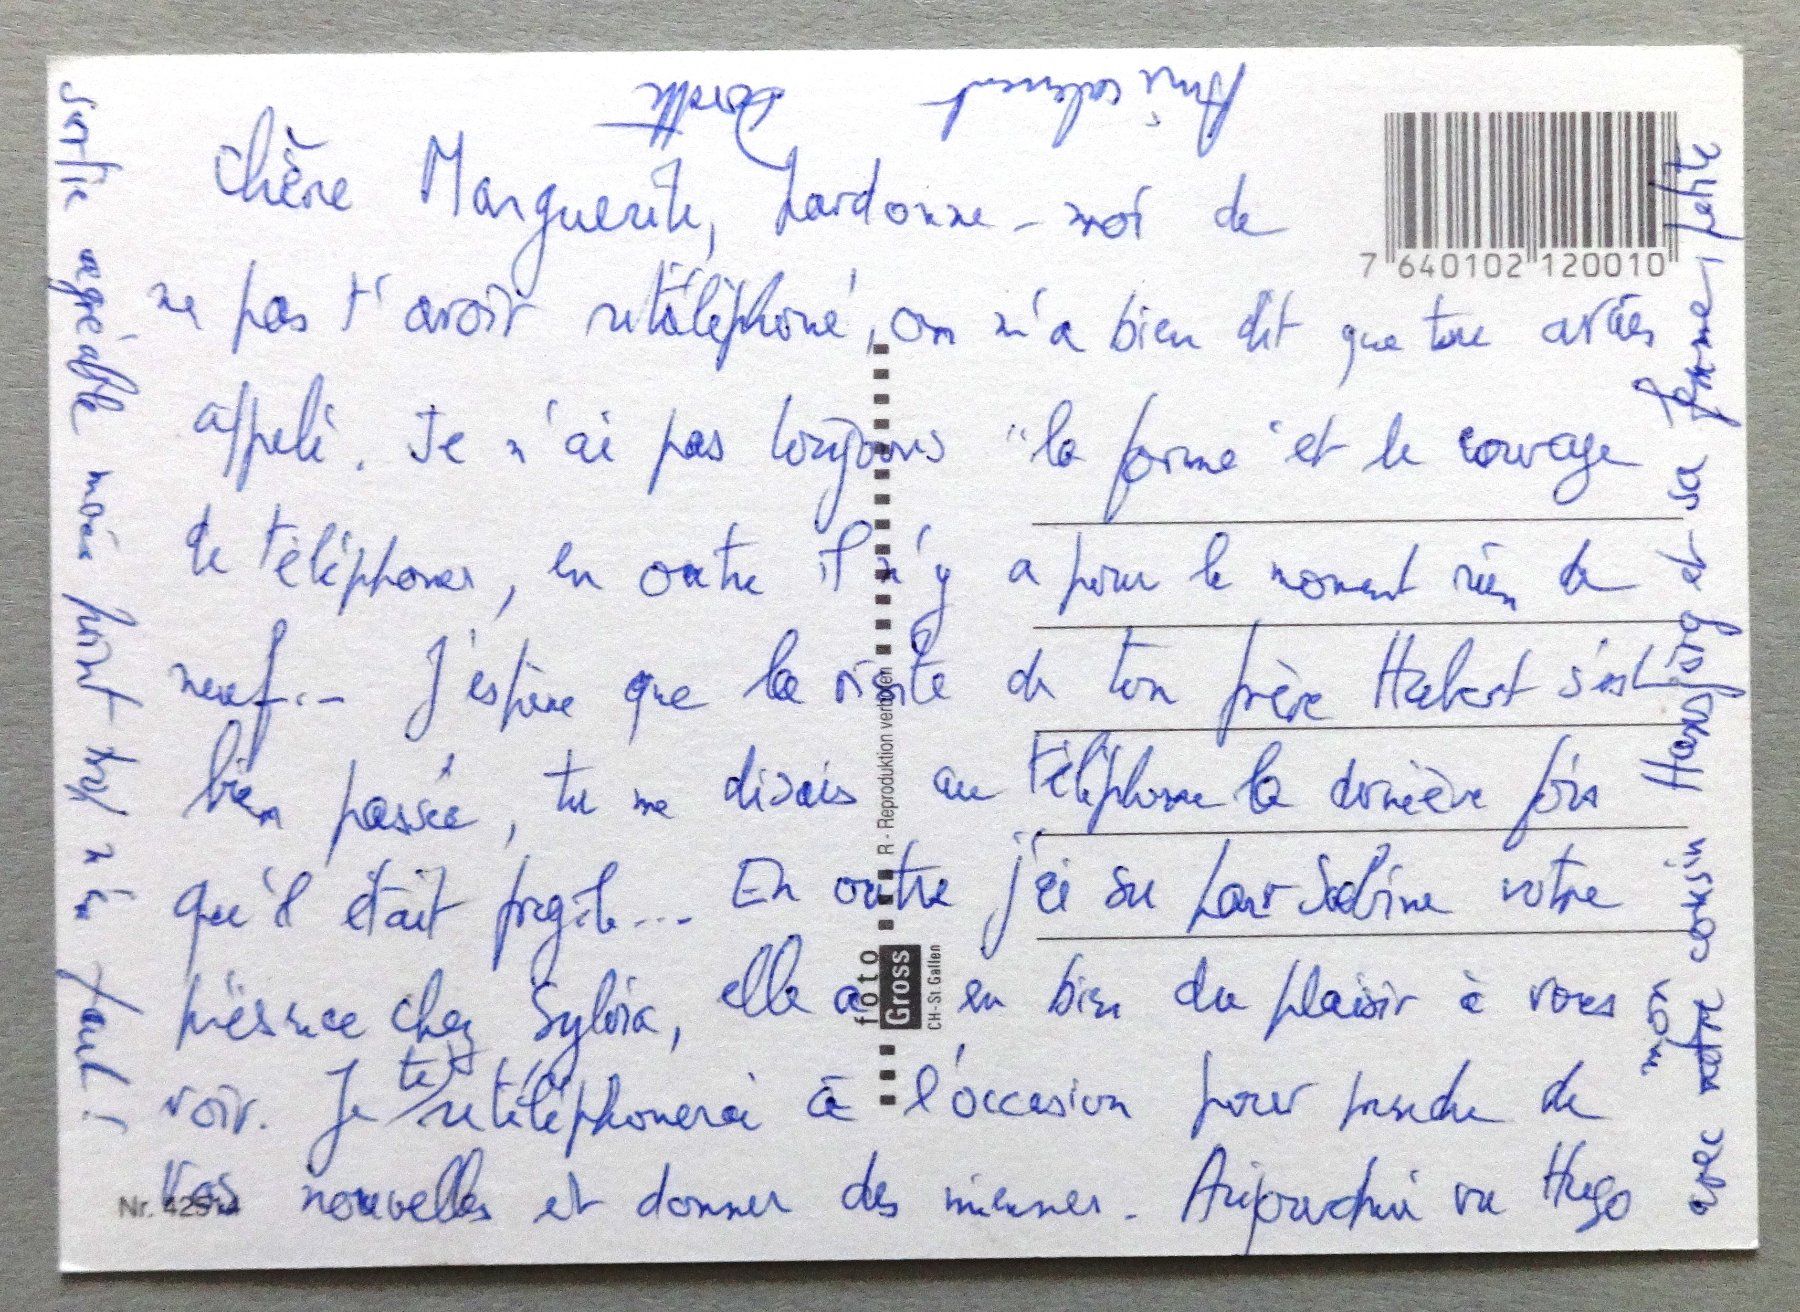 Chère Marguerite, Pardonne-moi de
ne pas t'avoir retéléphoné, on m'a bien dit que tu avais
appelé. Je n'ai pas toujours "la forme" et le courage
de téléphoner, en outre il n'y a pour le moment rien de
neuf... J'espère que la visite de ton frère Hubert s'est
bien passée, tu me disais au téléphone la dernière fois
qu'il était fragile... En outre j'ai su par Sabine votre
présence chez Sylvia, elle a eu bien du plaisir à vous
voir. Je te retéléphonerai à l'occasion pour prendre de
vos nouvelles et donner des miennes. Aujourd'hui vu Hugo
avec notre mon cousin Hansjörg et sa femme, petite
sortie agréable mais point trop n'en faut!
Amicalement
7 640102 120010
R - Reproduktion verboten
foto
Gross
CH-St. Gallen
Nr. 42514